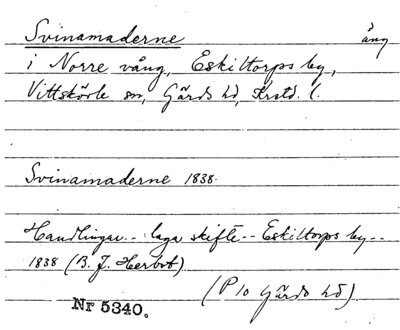 Svinamaderne äng
i Norre vång, Eskiltorps by,
Vittskövle sn, Gärds hd, Krstd. l.
Svinamaderne 1838.
Handlingar -- laga skifte -- Eskiltorps by --
1838 (B. J. Herbst)
(P 10 Gärds hd)
Nr 5340.